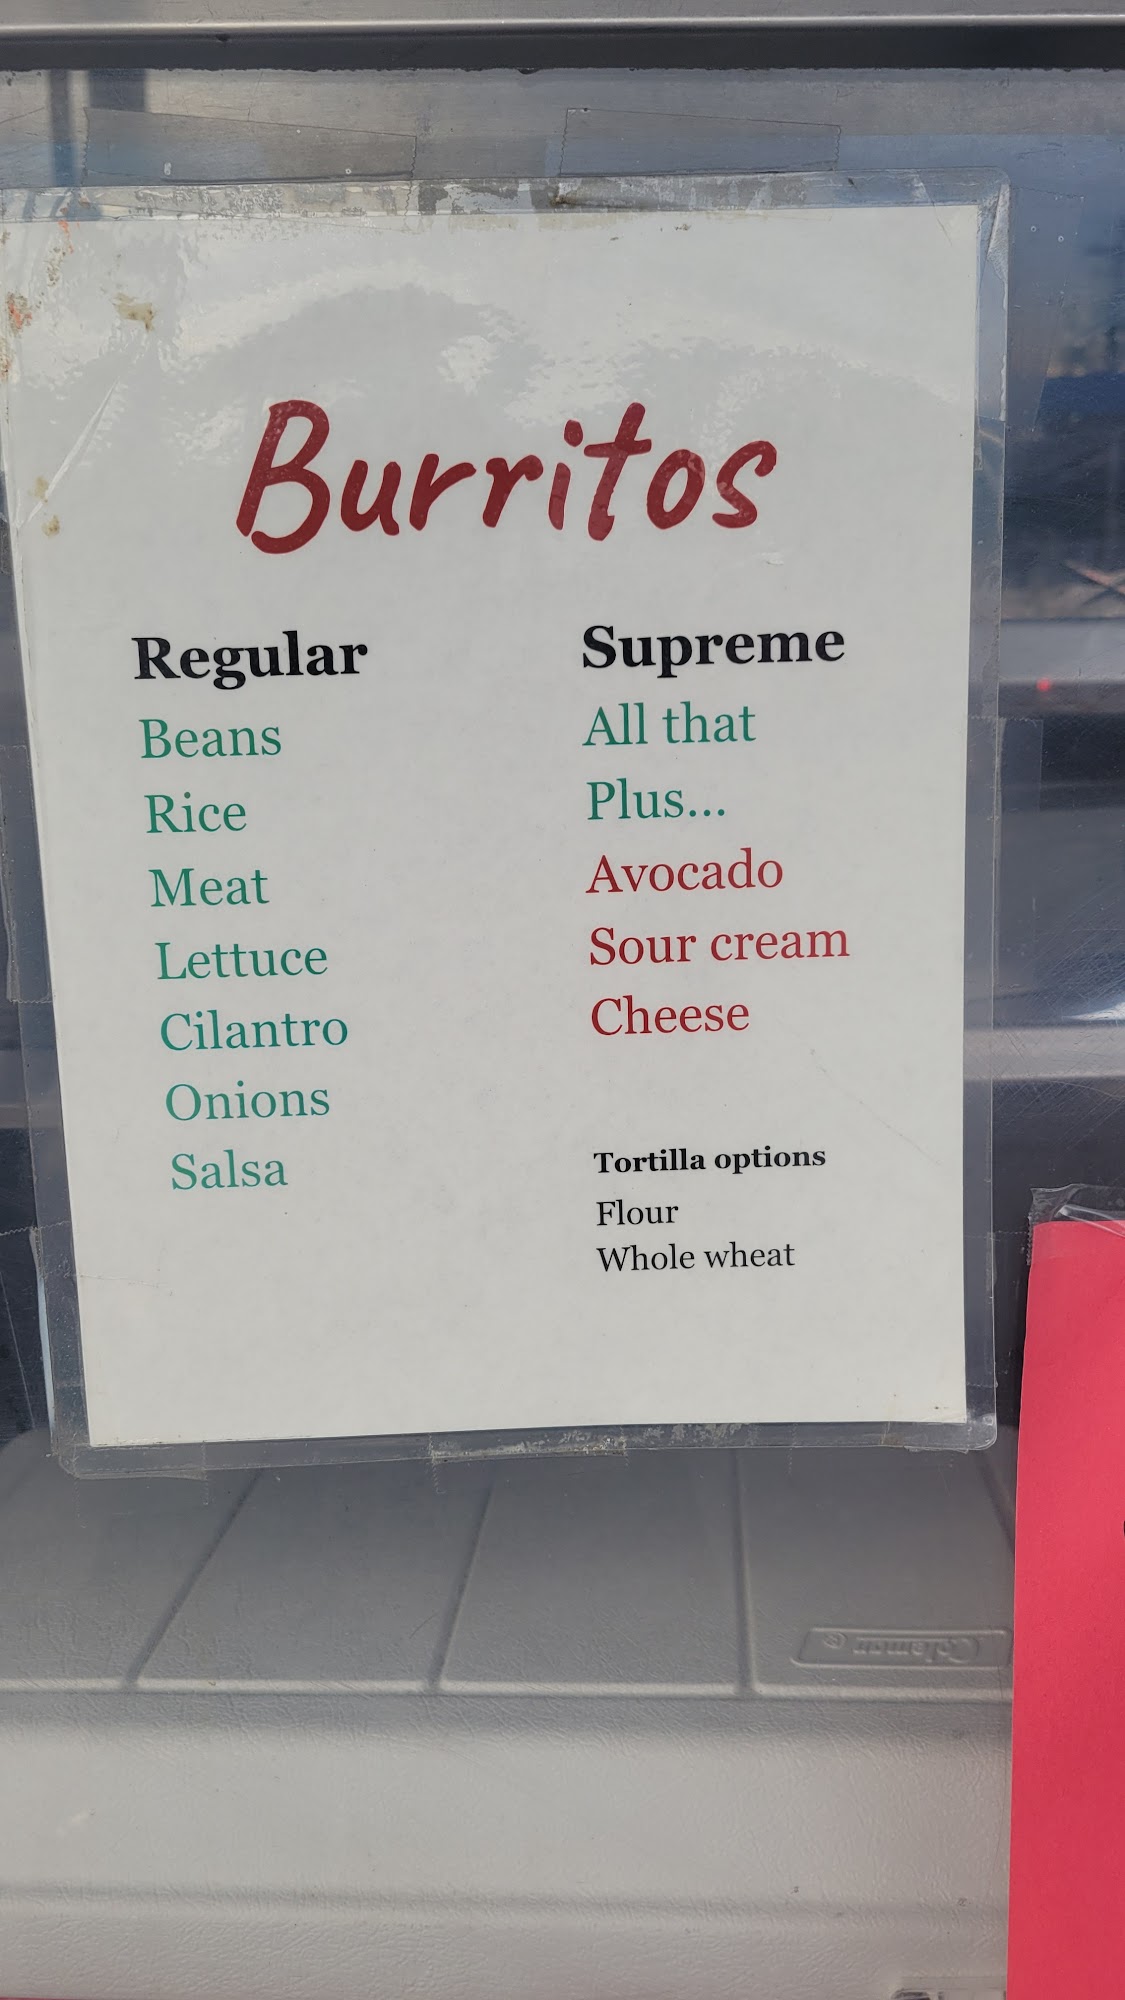 Burritos
Regular
Beans
Rice
Meat
Lettuce
Cilantro
Onions
Salsa
Supreme
All that
Plus...
Avocado
Sour cream
Cheese
Tortilla options
Flour
Whole wheat
Coleman